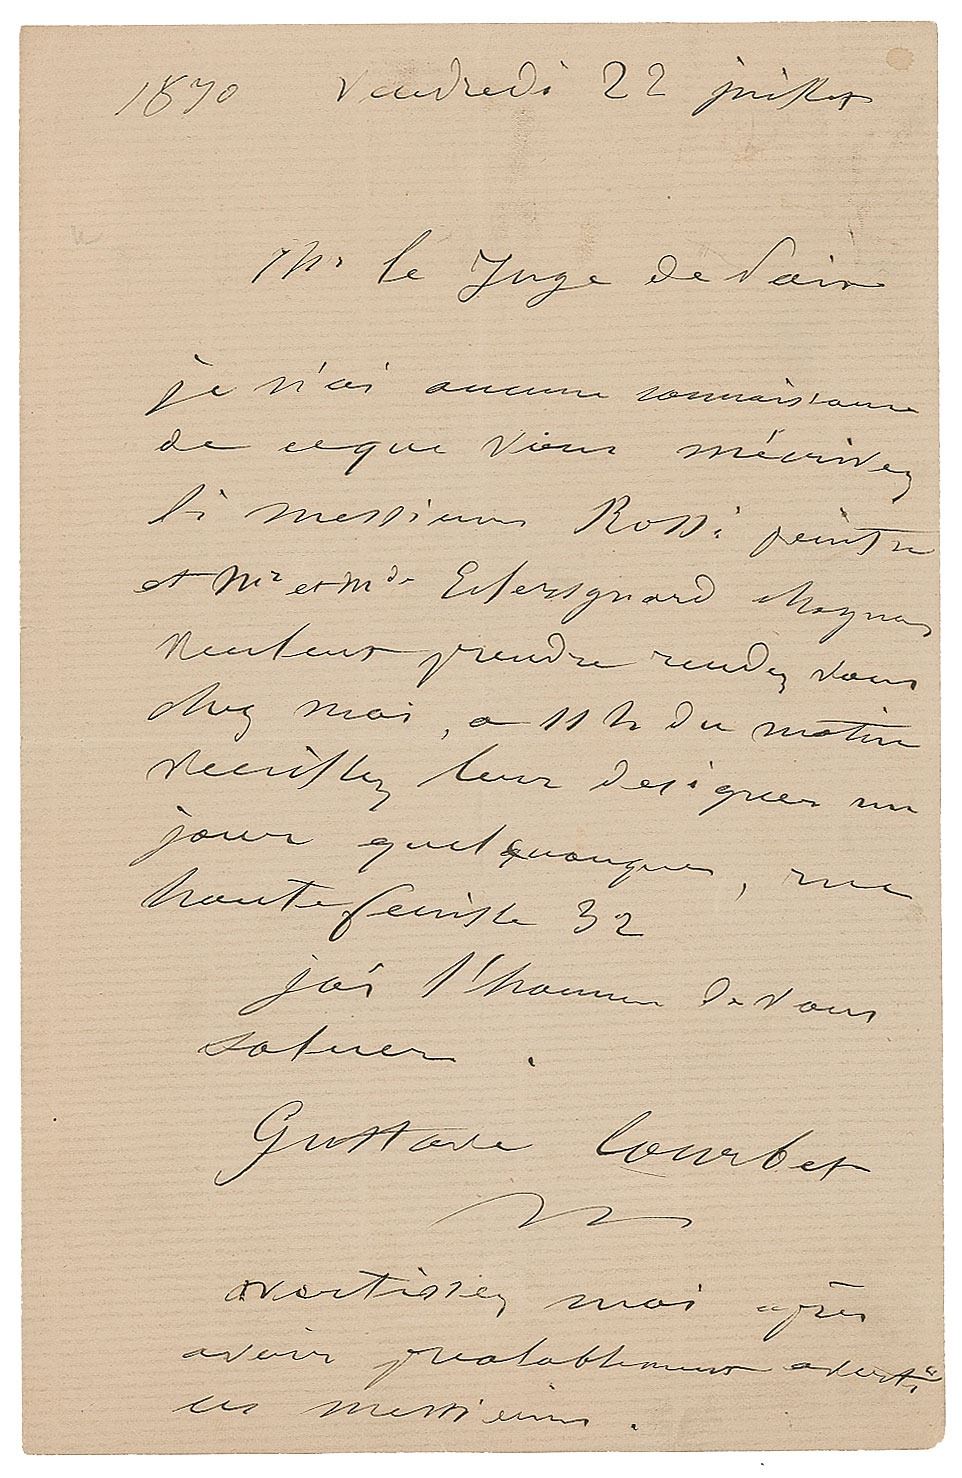 1870 Vendredi 22 juillet
Mr le Juge de Paix
je n'ai aucune connaissance
de ceque vous mécrivez
Si messieurs Rossi peintre
et Mr et Mde
veulent prendre rendez vous
chez moi, a 11 h du matin
veuillez leur designer un
jour quelquonque, rue
hautefeuille 32
jai l'honneur de vous
saluer.
Gustave Courbet
avertissez moi après
avoir prealablement averti
ces messieurs.